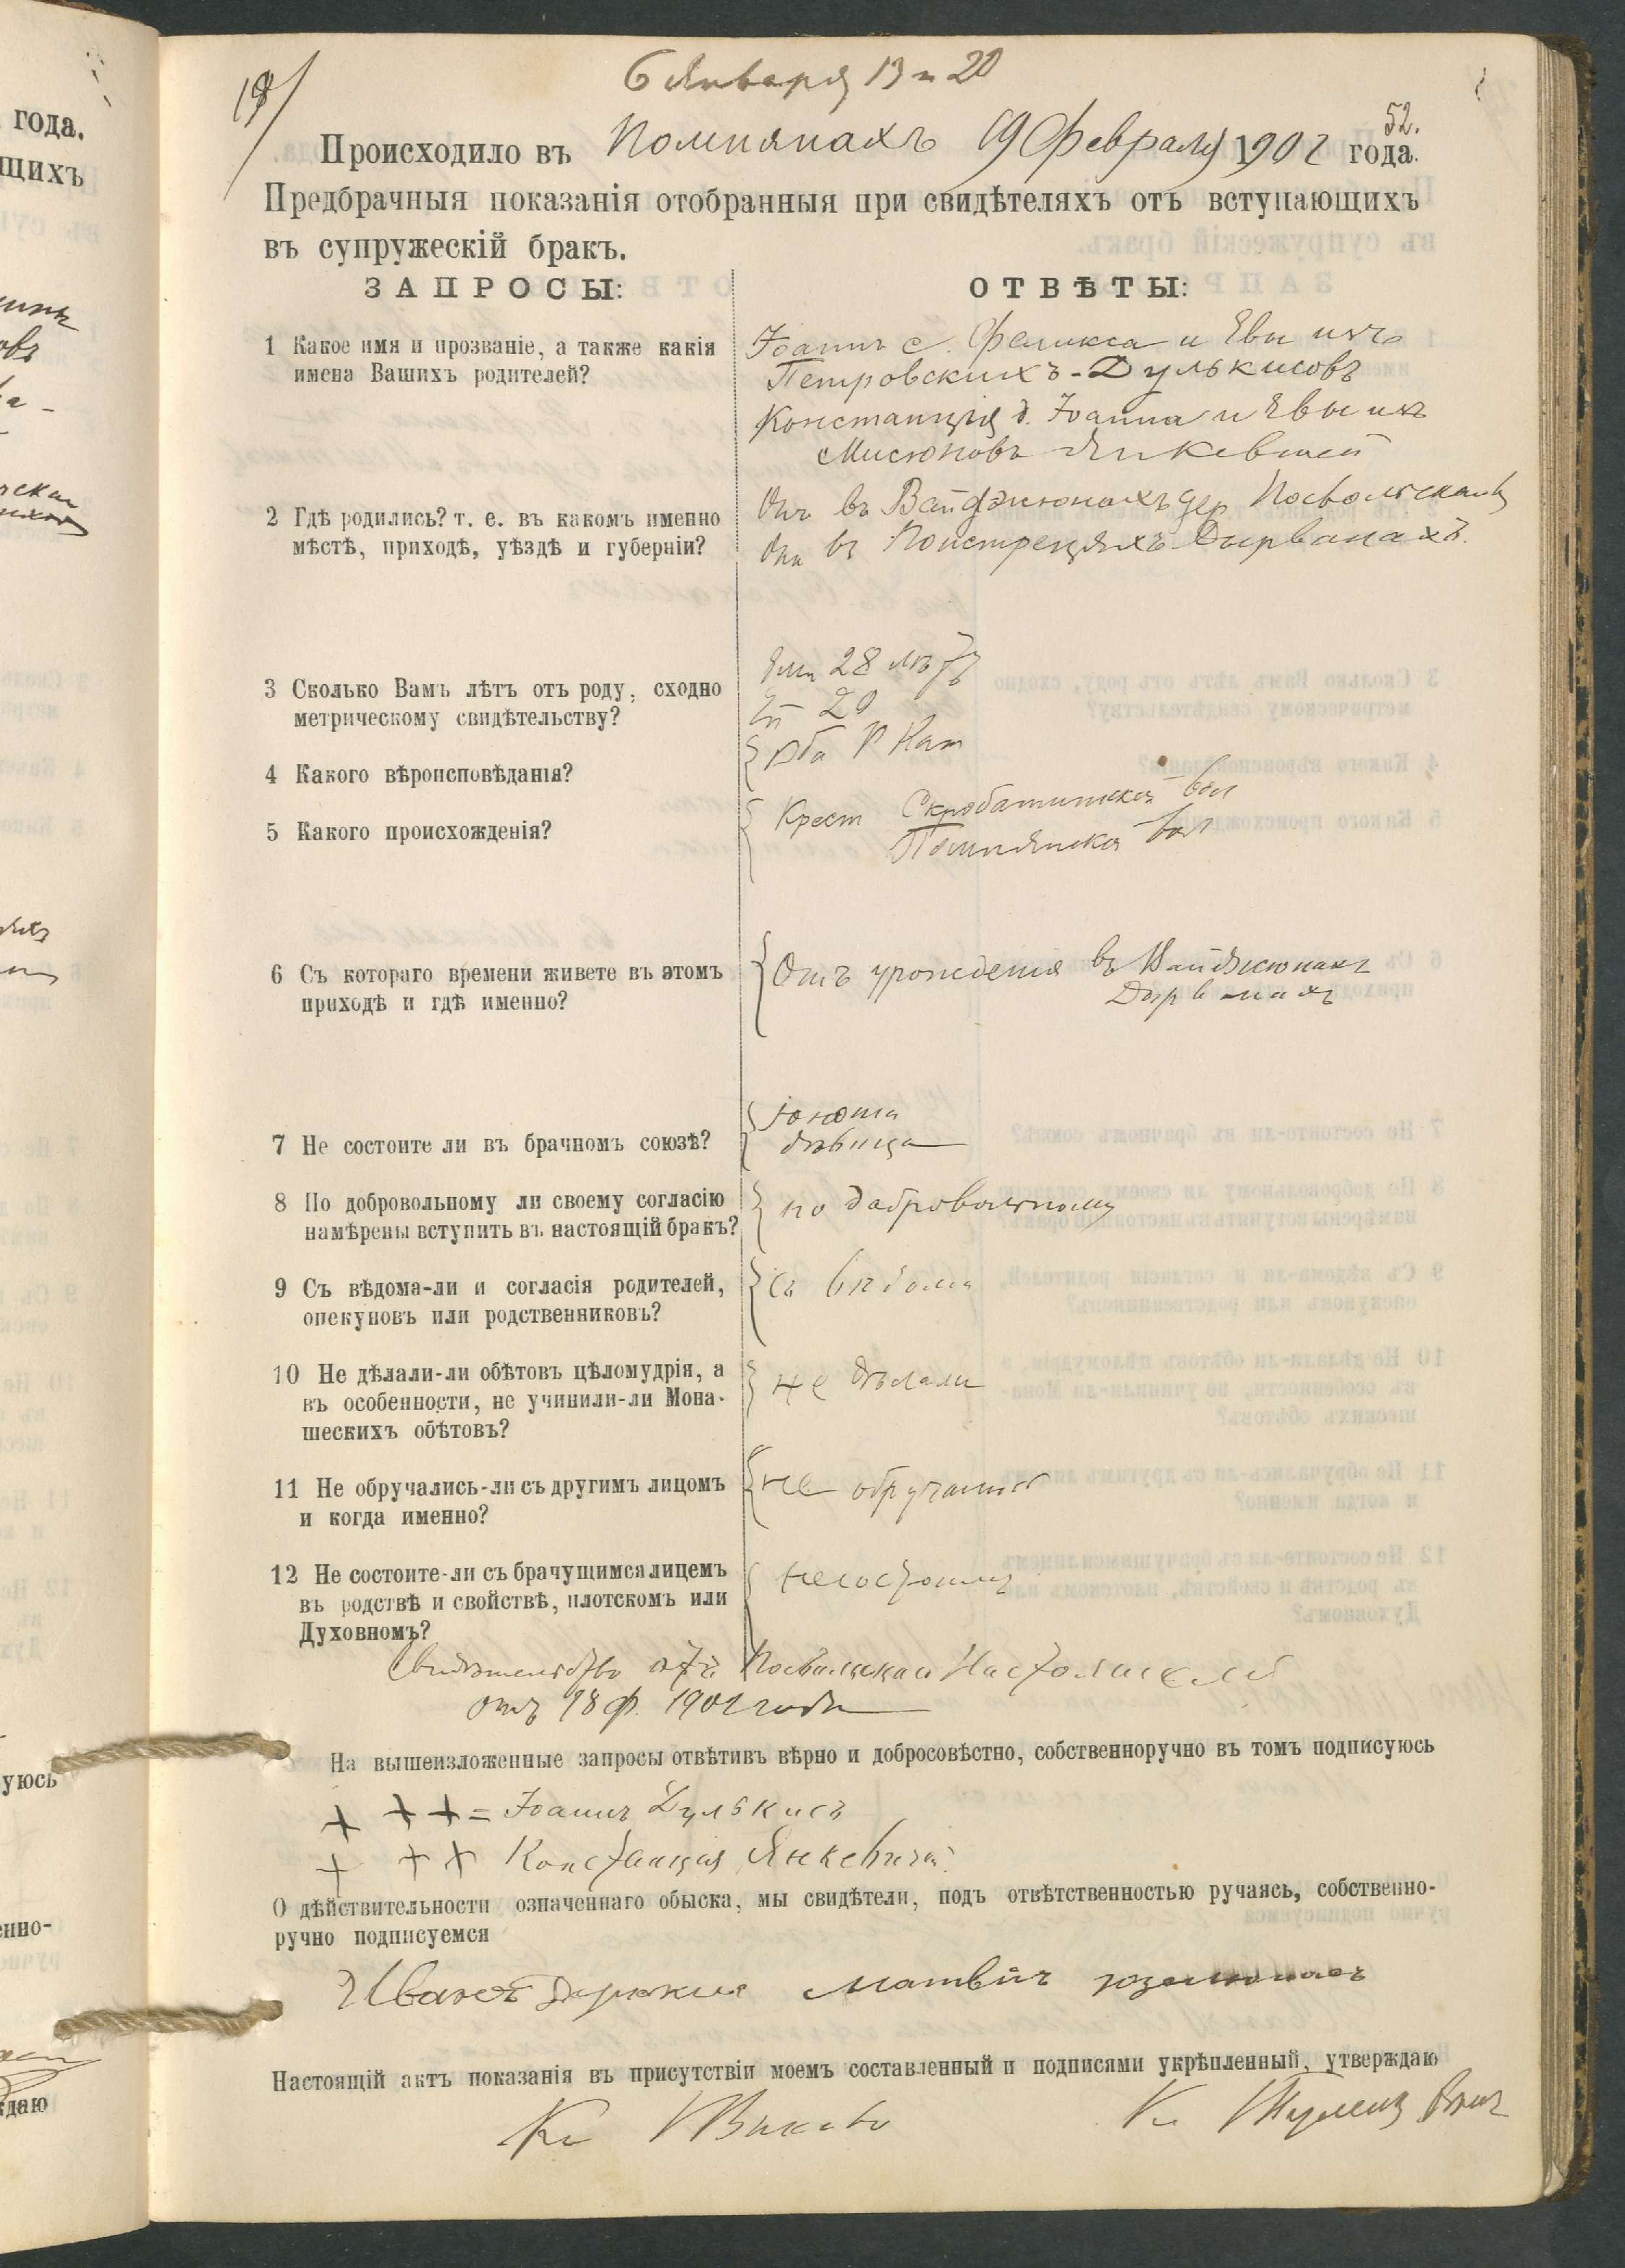 6 Января 13 и 20
19/
52.
Происходило въ Помпянахъ 19 Февраля 1902 года.
Предбрачныя показанія отобранныя при свидѣтеляхъ отъ вступающихъ
въ супружескій бракъ.
ЗАПРОСЫ:
ОТВѢТЫ:
1 Какое имя и прозваніе, а также какія
имена Вашихъ родителей?
Іоаннъ с. Феликса и Евы изъ
Петровскихъ-Дулькисовъ
Констанція д. Іоанна и Евы изъ
Мисюновъ Янкевичей
2 Гдѣ родились? т. е. въ какомъ именно
мѣстѣ, приходѣ, уѣздѣ и губерніи?
Онъ въ Вайджюнахъ дер Посвольскаго
Она въ Дырванахъ.
3 Сколько Вамъ лѣтъ отъ роду, сходно
метрическому свидѣтельству?
Ему 28 лѣтъ
Ей 20
4 Какого вѣроисповѣданія?
Оба Р Кат
5 Какого происхожденія?
Крест Скробатишской вол
Помпянской вол
6 Съ котораго времени живете въ этомъ
приходѣ и гдѣ именно?
Отъ урожденія въ Вайджюнахъ
Дырванахъ
7 Не состоите ли въ брачномъ союзѣ?
Юноша
дѣвица
8 По добровольному ли своему согласію
намѣрены вступить въ настоящій бракъ?
по добровольному
9 Съ вѣдома-ли и согласія родителей,
опекуновъ или родственниковъ?
Съ вѣдома
10 Не дѣлали-ли обѣтовъ цѣломудрія, а
въ особенности, не учинили-ли Мона-
шескихъ обѣтовъ?
не дѣлали
11 Не обручались-ли съ другимъ лицомъ
и когда именно?
не обручались
12 Не состоите-ли съ брачущимся лицемъ
въ родствѣ и свойствѣ, плотскомъ или
Духовномъ?
не состоимъ
Свидѣтельство отъ Посвольскаго Настоятеля
отъ 18 ф. 1902 года
На вышеизложенные запросы отвѣтивъ вѣрно и добросовѣстно, собственноручно въ томъ подписуюсь
+ + + = Іоаннъ Дулькисъ
+ + + Констанція Янкевичъ.
О дѣйствительности означеннаго обыска, мы свидѣтели, подъ отвѣтственностью ручаясь, собственно-
ручно подписуемся
Иванъ Матвѣй
Настоящій актъ показанія въ присутствіи моемъ составленный и подписями укрѣпленный, утверждаю
Кс
Кс
года.
щихъ
уюсь
нно-
ждаю